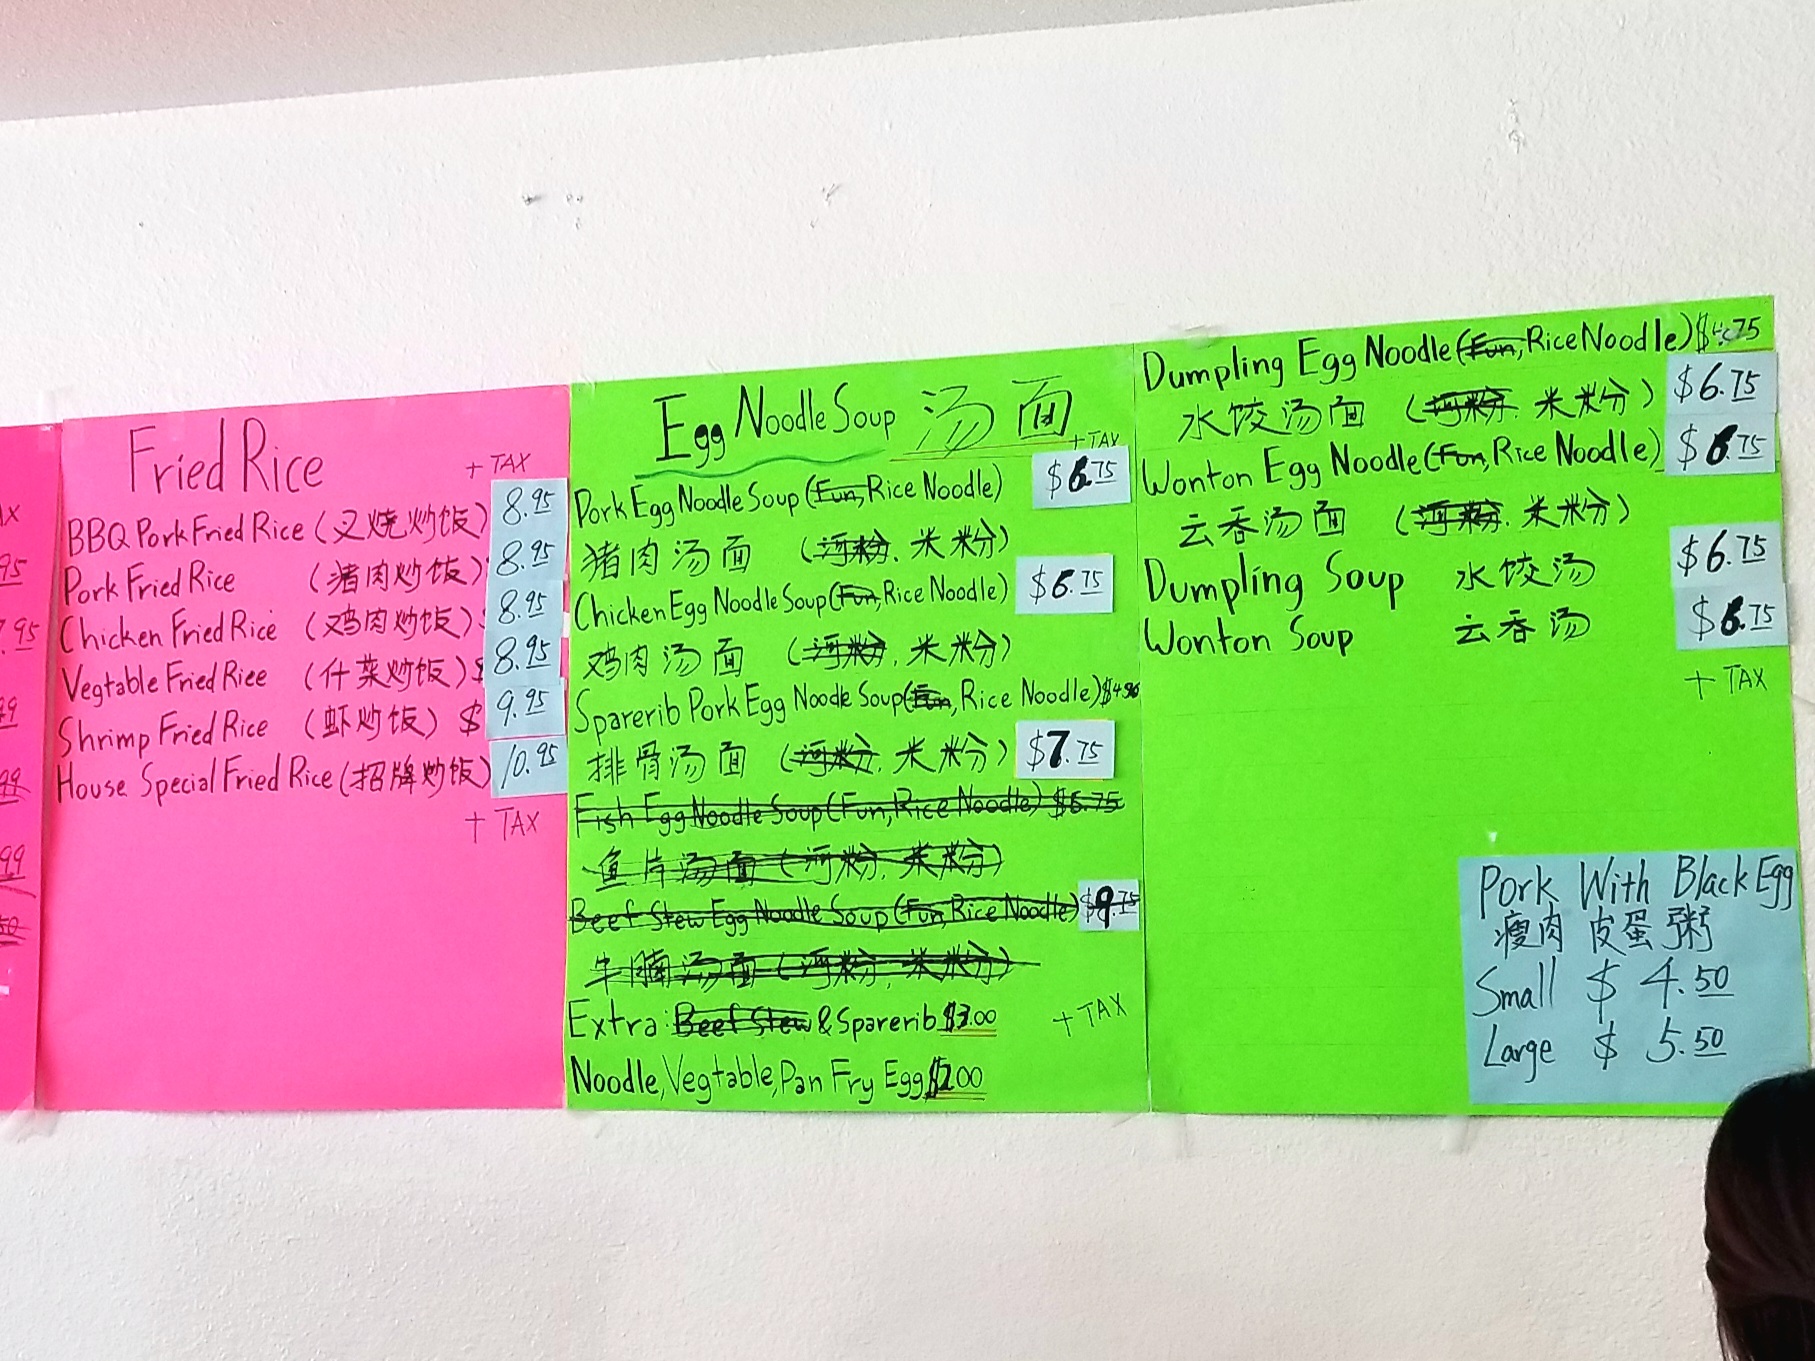 Fried Rice
+ TAX
BBQ Pork Fried Rice (叉烧炒饭) 8.95
Pork Fried Rice (猪肉炒饭) 8.95
Chicken Fried Rice (鸡肉炒饭) 8.95
Vegtable Fried Rice (什菜炒饭) $ 8.95
Shrimp Fried Rice (虾炒饭) $ 9.95
House Special Fried Rice (招牌炒饭) 10.95
+ TAX
Egg Noodle Soup 汤面
+ TAX
Pork Egg Noodle Soup (Fun, Rice Noodle) $6.75
猪肉汤面 (河粉. 米粉)
Chicken Egg Noodle Soup (Fun, Rice Noodle) $6.75
鸡肉汤面 (河粉. 米粉)
Sparerib Pork Egg Noodle Soup (Fun, Rice Noodle)
排骨汤面 (河粉. 米粉) $7.75
Fish Egg Noodle Soup (Fun, Rice Noodle) $6.75
鱼片汤面 (河粉. 米粉)
Beef Stew Egg Noodle Soup (Fun, Rice Noodle) $9.75
牛腩汤面 (河粉. 米粉)
Extra: Beef Stew & Sparerib $3.00
+ TAX
Noodle, Vegtable, Pan Fry Egg $2.00
Dumpling Egg Noodle (Fun, Rice Noodle) $4.75
水饺汤面 (河粉. 米粉) $6.75
Wonton Egg Noodle (Fun, Rice Noodle) $6.75
云吞汤面 (河粉. 米粉)
Dumpling Soup 水饺汤 $6.75
Wonton Soup 云吞汤 $6.75
+ TAX
Pork With Black Egg
瘦肉 皮蛋 粥
Small $ 4.50
Large $ 5.50